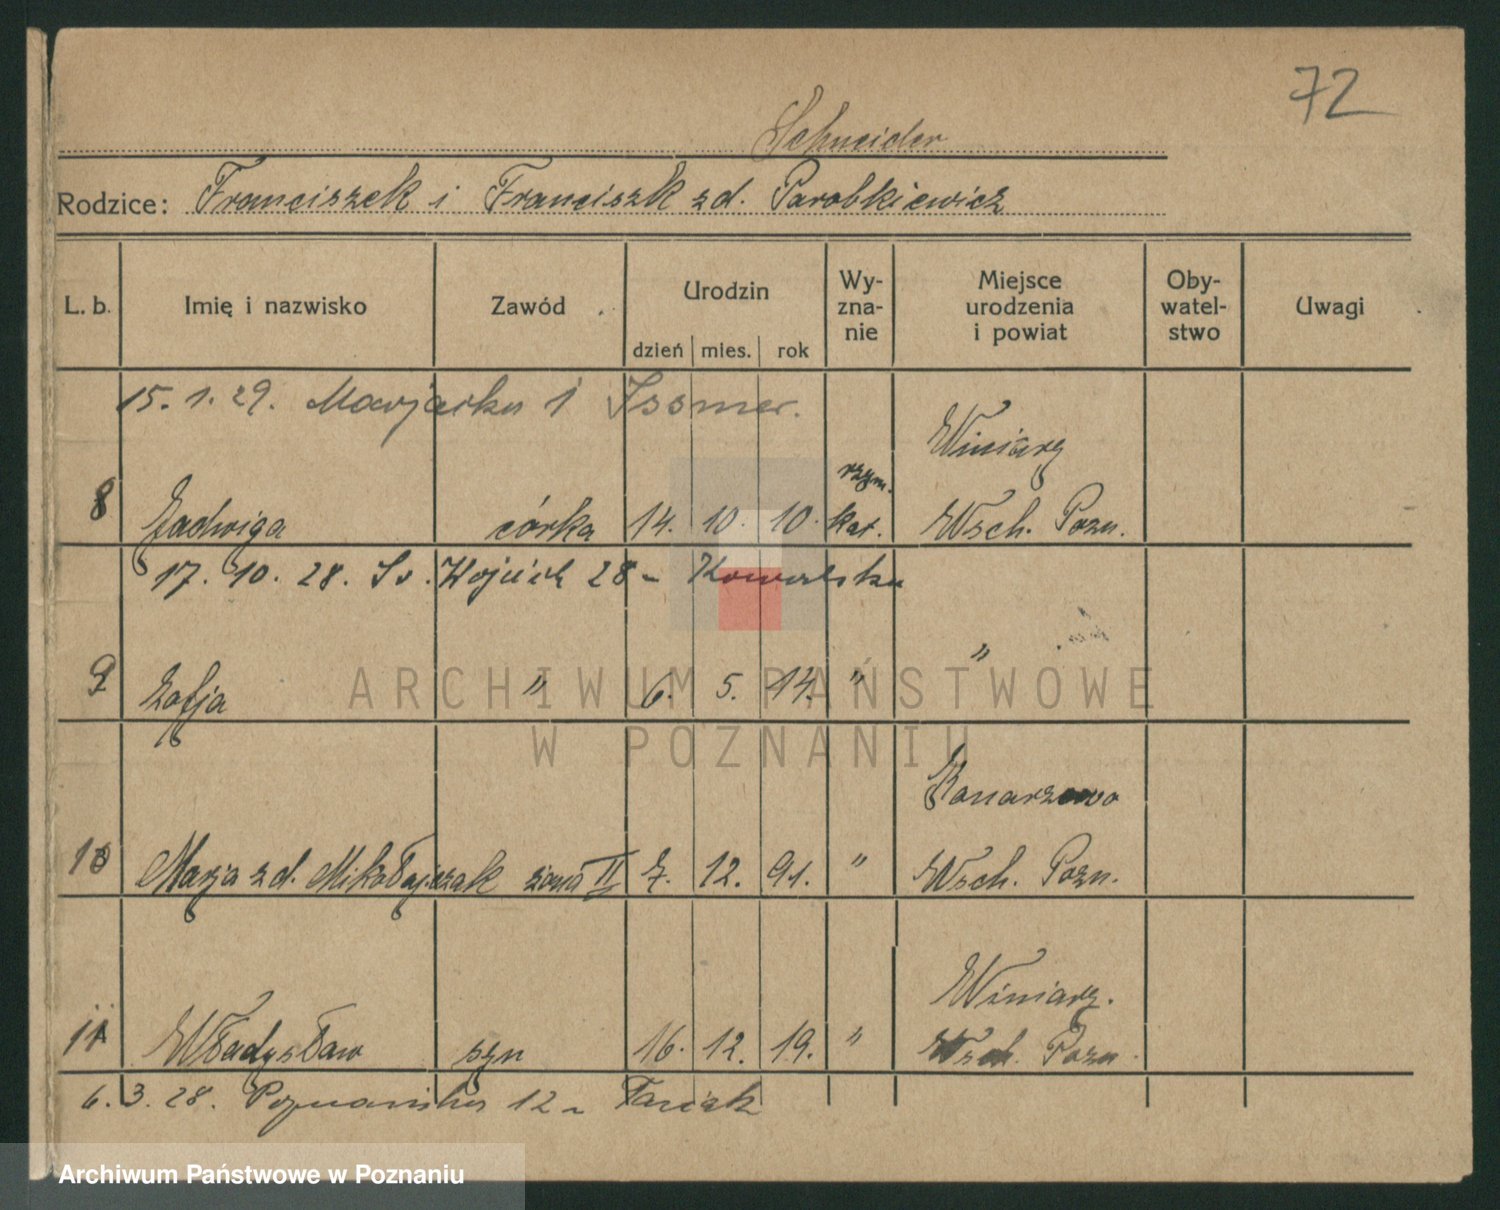 72
Schneider
Rodzice: Franciszek i Franciszk zd. Parobkiewicz
L. b. Imię i nazwisko Zawód Urodzin dzień mies. rok Wyznanie Miejsce urodzenia i powiat Obywatelstwo Uwagi
15. 1. 29. 1 Issmer.
Winiary
8 Jadwiga córka 14. 10. 10. rzym. kat. Wsch. Pozn.
17. 10. 28. Św. Wojciech 28 - Kowalska
9 Zofja " 6. 5. 14. " "
Konarzewo
10 Marja zd. Mikołajczak żona II 7. 12. 91. " Wsch. Pozn.
Winiary.
11 Władysław syn 16. 12. 19. " Wsch. Pozn.
6. 3. 28. Poznańska 12 -
ARCHIWUM PAŃSTWOWE
W POZNANIU
Archiwum Państwowe w Poznaniu